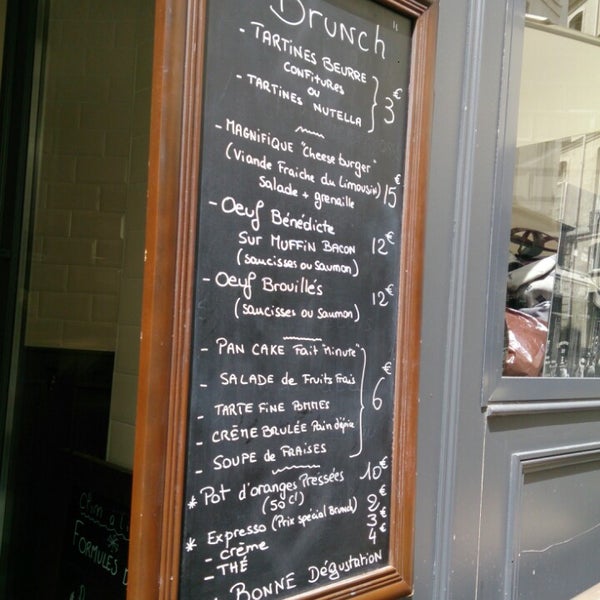 Brunch
- TARTINES BEURRE
CONFITURES
OU
- TARTINES NUTELLA
3€
- MAGNIFIQUE "Cheese burger"
(Viande Fraiche du Limousin)
Salade + grenaille
15€
- Oeuf Bénédicte
SUR MUFFIN BACON
(saucisses ou saumon)
12€
- Oeuf Brouillés
(saucisses ou saumon)
12€
- PAN CAKE Fait "minute"
- SALADE de Fruits Frais
- TARTE FINE POMMES
- CRÈME BRULÉE Pain d'épice
- SOUPE de FRAISES
6€
* Pot d'oranges Pressées
(50 cl)
10€
* Expresso (Prix spécial Brunch) 2€
- Crème 3€
- THÉ 4€
- BONNE Dégustation
FORMULES